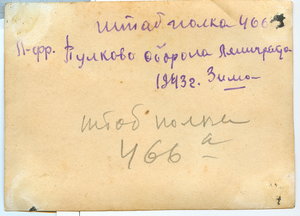 штаб полка 466
Л-фр. Пулково оборона Ленинграда
1943 г. Зима
штаб полка
466 а